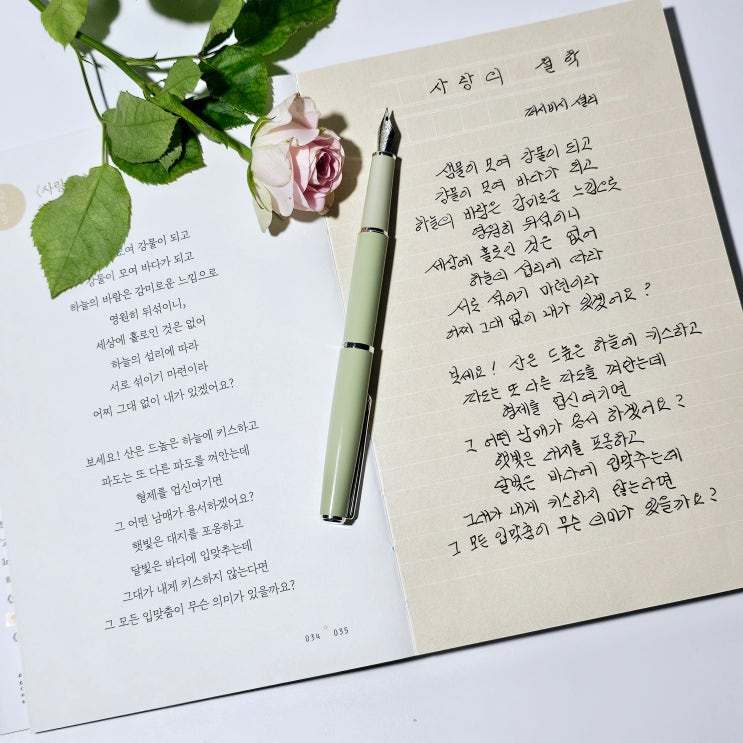 <사람
모여 강물이 되고
강물이 모여 바다가 되고
하늘의 바람은 감미로운 느낌으로
영원히 뒤섞이니,
세상에 홀로인 것은 없어
하늘의 섭리에 따라
서로 섞이기 마련이라
어찌 그대 없이 내가 있겠어요?
보세요! 산은 드높은 하늘에 키스하고
파도는 또 다른 파도를 껴안는데
형제를 업신여기면
그 어떤 남매가 용서하겠어요?
햇빛은 대지를 포옹하고
달빛은 바다에 입맞추는데
그대가 내게 키스하지 않는다면
그 모든 입맞춤이 무슨 의미가 있을까요?
034 035
사랑의 철학
퍼시 비시 셸리
샘물이 모여 강물이 되고
강물이 모여 바다가 되고
하늘의 바람은 감미로운 느낌으로
영원히 뒤섞이니
세상에 홀로인 것은 없어
하늘의 섭리에 따라
서로 섞이기 마련이라
어찌 그대 없이 내가 있겠어요?
보세요! 산은 드높은 하늘에 키스하고
파도는 또 다른 파도를 껴안는데
형제를 업신여기면
그 어떤 남매가 용서 하겠어요?
햇빛은 대지를 포옹하고
달빛은 바다에 입맞추는데
그대가 내게 키스하지 않는다면
그 모든 입맞춤이 무슨 의미가 있을까요?